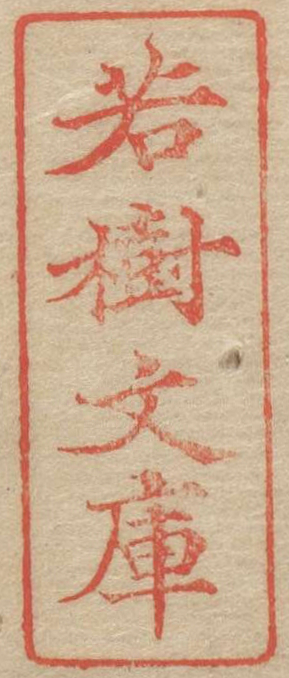 若樹文庫